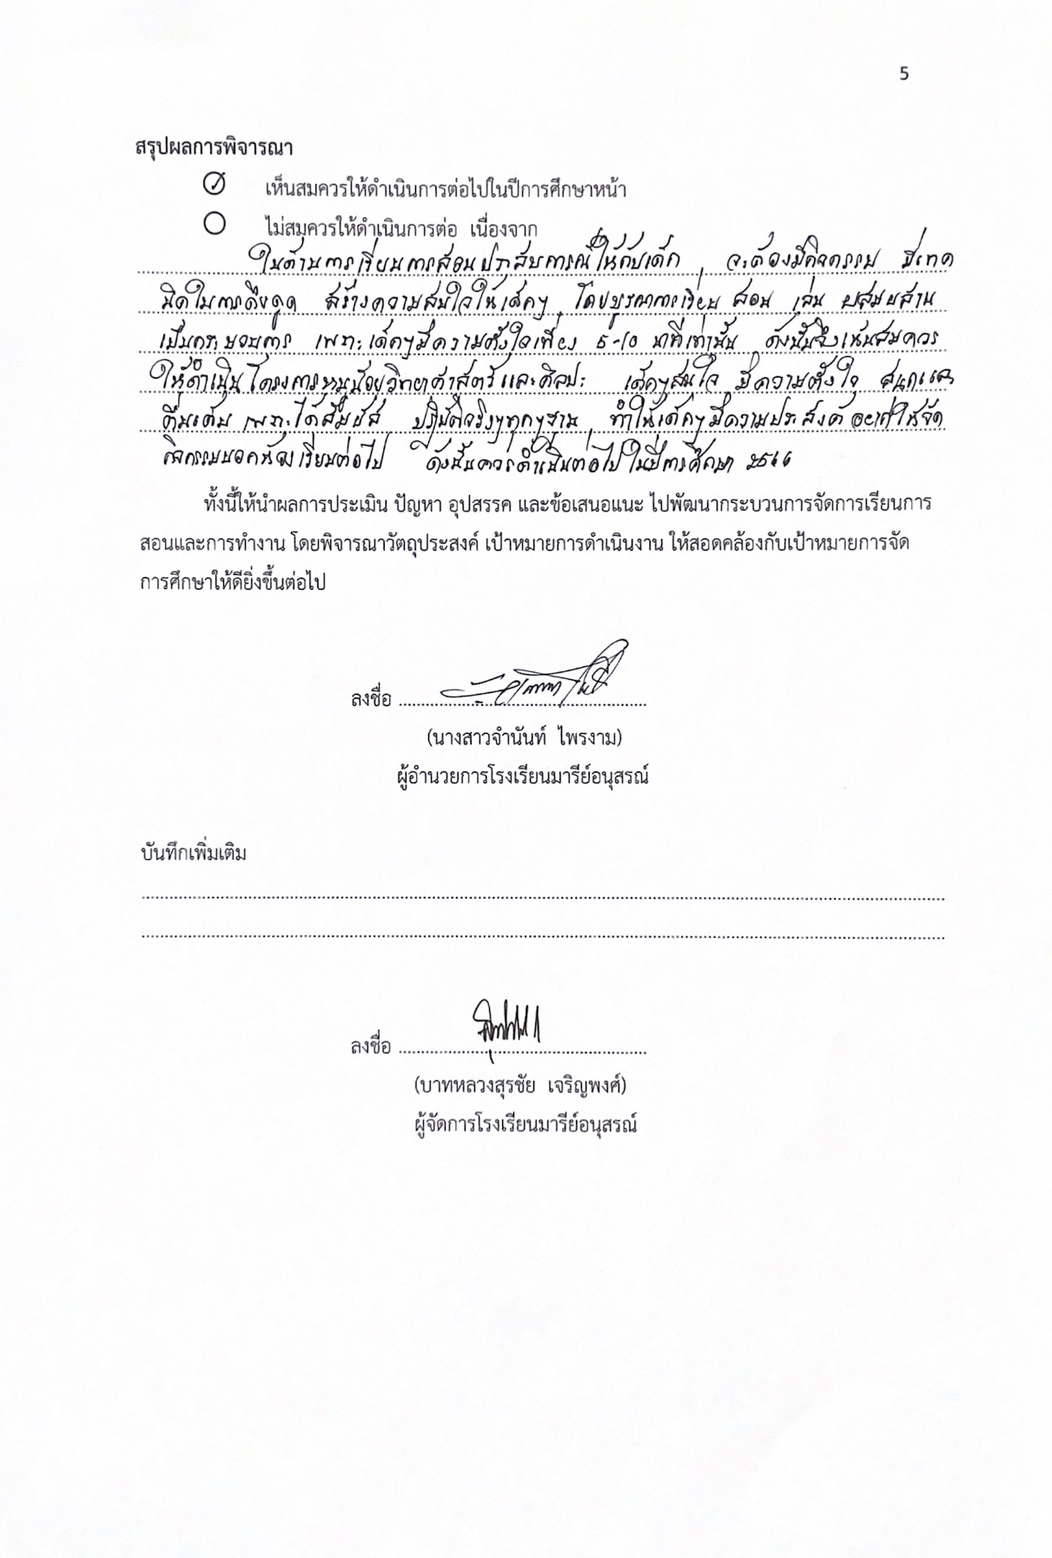 5
สรุปผลการพิจารณา
เห็นสมควรให้ดำเนินการต่อไปในปีการศึกษาหน้า
ไม่สมควรให้ดำเนินการต่อ เนื่องจาก
ในด้านการเรียนการสอนประสบการณ์ให้กับเด็ก จะต้องมีกิจกรรม มีเทค
นิคในการดึงดูด สร้างความสนใจให้เด็กๆ โดยบูรณาการเรียน สอน เล่น ผสมผสาน
เป็นกระบวนการ เพราะเด็กๆมีความตั้งใจเพียง 5-10 นาทีเท่านั้น ดังนั้นจึงเห็นสมควร
ให้ดำเนินโครงการหนูน้อยวิทยาศาสตร์และศิลปะ เด็กๆสนใจ มีความตั้งใจ สนุกและ
ตื่นเต้น เพราะได้สัมผัส ปฏิบัติจริงๆทุกๆฐาน ทำให้เด็กๆมีความประสงค์ อยากให้จัด
กิจกรรมนอกห้องเรียนต่อไป ดังนั้นควรดำเนินต่อไป ในปีการศึกษา 2566
ทั้งนี้ให้นำผลการประเมิน ปัญหา อุปสรรค และข้อเสนอแนะ ไปพัฒนากระบวนการจัดการเรียนการ
สอนและการทำงาน โดยพิจารณาวัตถุประสงค์ เป้าหมายการดำเนินงาน ให้สอดคล้องกับเป้าหมายการจัด
การศึกษาให้ดียิ่งขึ้นต่อไป
ลงชื่อ
(นางสาวจำนันท์ ไพรงาม)
ผู้อำนวยการโรงเรียนมารีย์อนุสรณ์
บันทึกเพิ่มเติม
ลงชื่อ
(บาทหลวงสุรชัย เจริญพงศ์)
ผู้จัดการโรงเรียนมารีย์อนุสรณ์